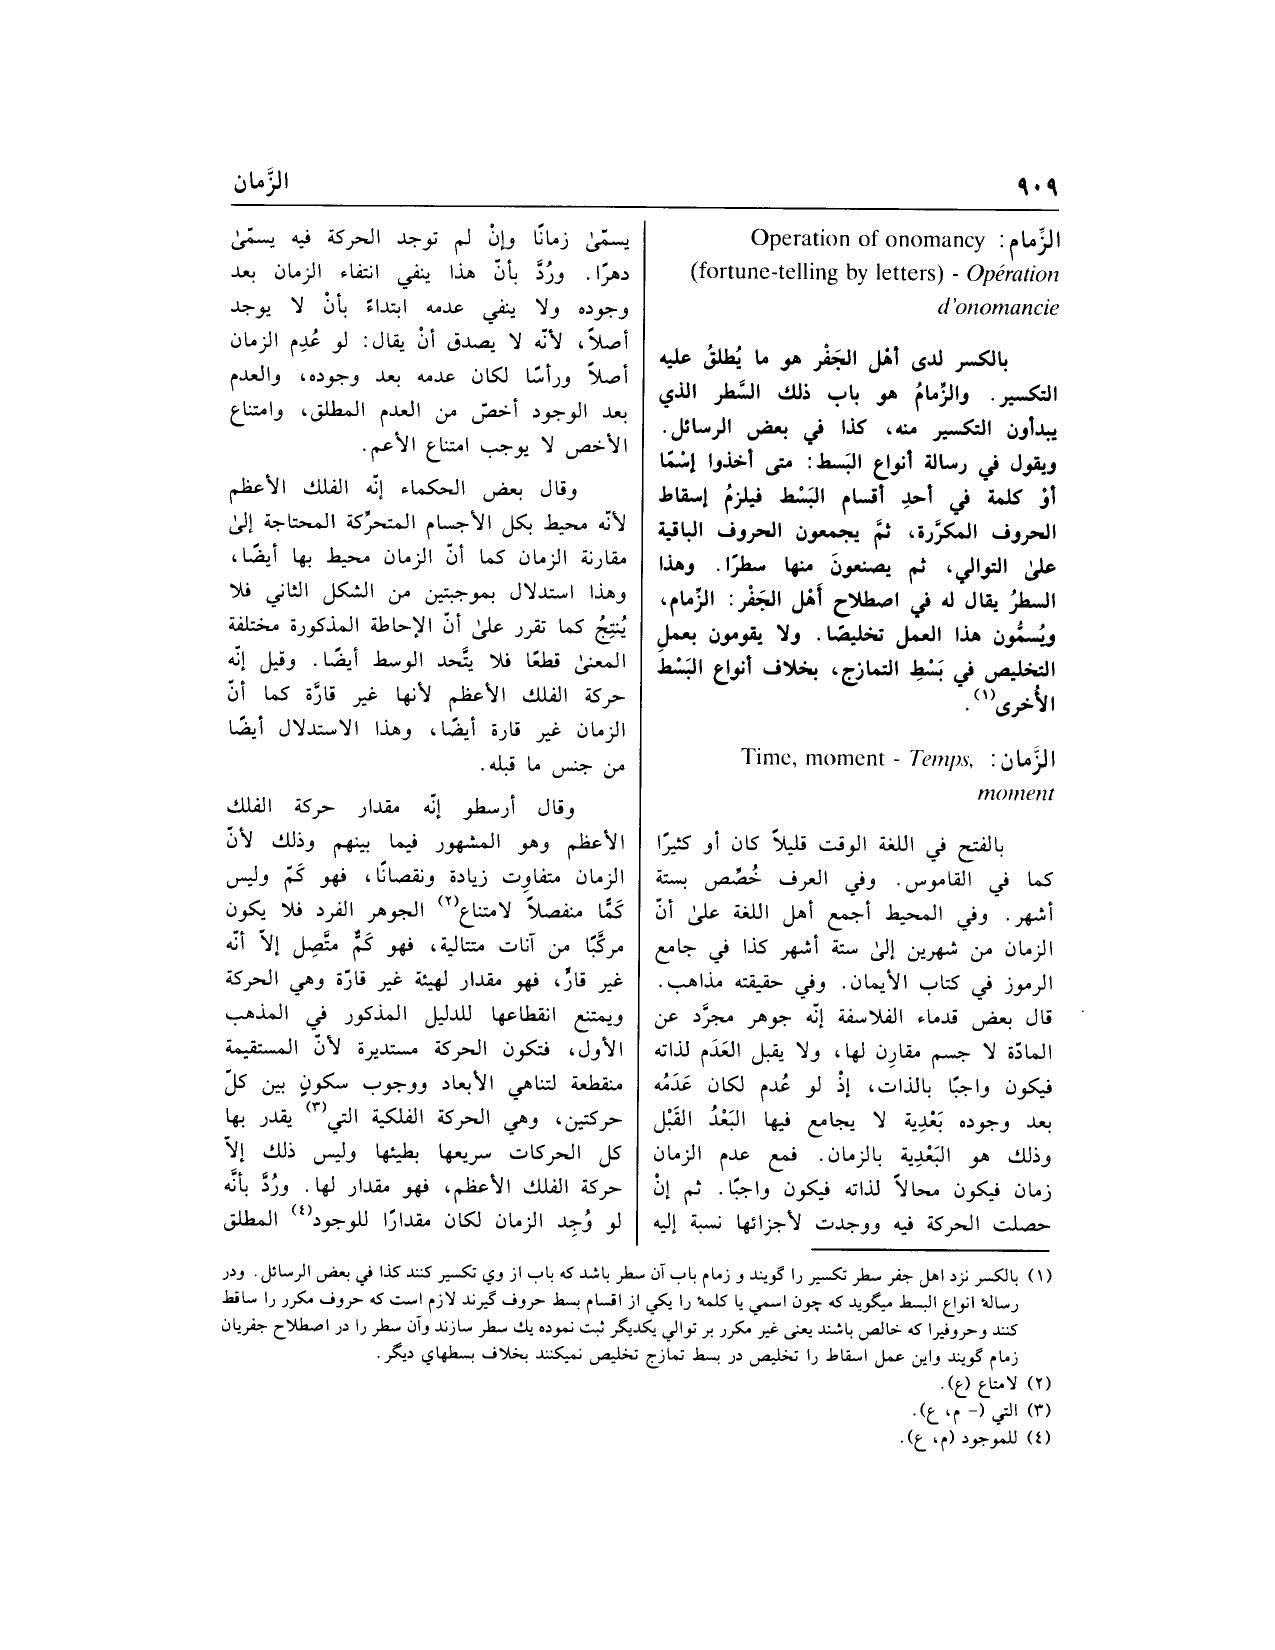 ٩٠٩
الزَّمان
الزِّمام: Operation of onomancy
(fortune-telling by letters) - Opération
d'onomancie
بالكسر لدى أهْل الجَفْر هو ما يُطلقُ عليه
التكسير. والزِّمامُ هو باب ذلك السَّطر الذي
يبدأون التكسير منه، كذا في بعض الرسائل.
ويقول في رسالة أنواع البَسط: متى أخذوا إسْمًا
أوْ كلمة في أحدِ أقسام البَسْط فيلزمُ إسقاط
الحروف المكرَّرة، ثمَّ يجمعون الحروف الباقية
علىٰ التوالي، ثم يصنعونَ منها سطرًا. وهذا
السطرُ يقال له في اصطلاح أَهْل الجَفْر: الزِّمام،
ويُسمُّون هذا العمل تخليصًا. ولا يقومون بعملِ
التخليص في بَسْطِ التمازج، بخلاف أنواع البَسْط
الأُخرى(١).
الزَّمان: Time, moment - Temps,
moment
بالفتح في اللغة الوقت قليلاً كان أو كثيرًا
كما في القاموس. وفي العرف خُصِّص بستة
أشهر. وفي المحيط أجمع أهل اللغة علىٰ أنّ
الزمان من شهرين إلىٰ ستة أشهر كذا في جامع
الرموز في كتاب الأيمان. وفي حقيقته مذاهب.
قال بعض قدماء الفلاسفة إنّه جوهر مجرَّد عن
المادّة لا جسم مقارِن لها، ولا يقبل العَدَم لذاته
فيكون واجبًا بالذات، إذْ لو عُدم لكان عَدَمُه
بعد وجوده بَعْدِية لا يجامع فيها البَعْدُ القَبْل
وذلك هو البَعْدِية بالزمان. فمع عدم الزمان
زمان فيكون محالاً لذاته فيكون واجبًا. ثم إنْ
حصلت الحركة فيه ووجدت لأجزائها نسبة إليه
يسمّىٰ زمانًا وإنْ لم توجد الحركة فيه يسمّىٰ
دهرًا. ورُدَّ بأنّ هذا ينفي انتفاء الزمان بعد
وجوده ولا ينفي عدمه ابتداءً بأنْ لا يوجد
أصلاً، لأنّه لا يصدق أنْ يقال: لو عُدِم الزمان
أصلاً ورأسًا لكان عدمه بعد وجوده، والعدم
بعد الوجود أخصّ من العدم المطلق، وامتناع
الأخص لا يوجب امتناع الأعم.
وقال بعض الحكماء إنّه الفلك الأعظم
لأنّه محيط بكل الأجسام المتحرِّكة المحتاجة إلىٰ
مقارنة الزمان كما أنّ الزمان محيط بها أيضًا،
وهذا استدلال بموجبتين من الشكل الثاني فلا
يُنتِجُ كما تقرر علىٰ أنّ الإحاطة المذكورة مختلفة
المعنىٰ قطعًا فلا يتَّحد الوسط أيضًا. وقيل إنّه
حركة الفلك الأعظم لأنها غير قارَّة كما أنّ
الزمان غير قارة أيضًا، وهذا الاستدلال أيضًا
من جنس ما قبله.
وقال أرسطو إنّه مقدار حركة الفلك
الأعظم وهو المشهور فيما بينهم وذلك لأنّ
الزمان متفاوِت زيادة ونقصانًا، فهو كَمّ وليس
كَمًّا منفصلاً لامتناع(٢) الجوهر الفرد فلا يكون
مركَّبًا من آنات متتالية، فهو كَمٌّ متَّصِل إلاّ أنّه
غير قارٍّ، فهو مقدار لهيئة غير قارّة وهي الحركة
ويمتنع انقطاعها للدليل المذكور في المذهب
الأول، فتكون الحركة مستديرة لأنّ المستقيمة
منقطعة لتناهي الأبعاد ووجوب سكونٍ بين كلّ
حركتين، وهي الحركة الفلكية التي(٣) يقدر بها
كل الحركات سريعها بطيئها وليس ذلك إلاّ
حركة الفلك الأعظم، فهو مقدار لها. ورُدَّ بأنَّه
لو وُجِد الزمان لكان مقدارًا للوجود(٤) المطلق
(١) بالكسر نزد اهل جفر سطر تكسير را گويند و زمام باب آن سطر باشد كه باب از وي تكسير كنند كذا في بعض الرسائل. ودر
رسالهٔ انواع البسط ميگويد كه چون اسمي يا كلمهٔ را يكي از اقسام بسط حروف گيرند لازم است كه حروف مكرر را ساقط
كنند وحروفيرا كه خالص باشند يعنى غير مكرر بر توالي يكديگر ثبت نموده يك سطر سازند وآن سطر را در اصطلاح جفريان
زمام گويند واين عمل اسقاط را تخليص در بسط تمازج تخليص نميكنند بخلاف بسطهاي ديگر.
(٢) لامتاع (ع).
(٣) التي (- م، ع).
(٤) للموجود (م، ع).